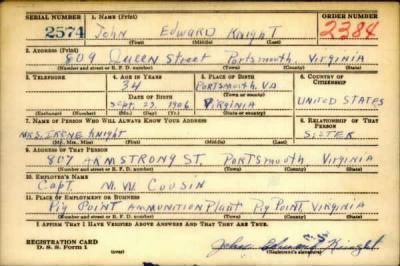 SERIAL NUMBER 1. NAME (Print) ORDER NUMBER
2574 John Edward Knight 2384
(First) (Middle) (Last)
2. ADDRESS (Print)
809 Queen Street Portsmouth Virginia
(Number and street or R. F. D. number) (Town) (County) (State)
3. TELEPHONE 4. AGE IN YEARS 5. PLACE OF BIRTH 6. COUNTRY OF CITIZENSHIP
34 Portsmouth, VA
(Town or county)
DATE OF BIRTH
Sept. 23. 1906 Virginia UNITED STATES
(Exchange) (Number) (Mo.) (Day) (Yr.) (State or country)
7. NAME OF PERSON WHO WILL ALWAYS KNOW YOUR ADDRESS 8. RELATIONSHIP OF THAT PERSON
MRS. IRENE Knight SISTER
(Mr., Mrs., Miss) (First) (Middle) (Last)
9. ADDRESS OF THAT PERSON
807 ARMSTRONG ST. PORTSMOUTH, VIRGINIA
(Number and street or R. F. D. number) (Town) (County) (State)
10. EMPLOYER'S NAME
CAPT. M. W. COUSIN
11. PLACE OF EMPLOYMENT OR BUSINESS
Pig POINT AMMUNITION PLANT Pig POINT, VIRGINIA
(Number and street or R. F. D. number) (Town) (County) (State)
I AFFIRM THAT I HAVE VERIFIED ABOVE ANSWERS AND THAT THEY ARE TRUE.
REGISTRATION CARD
D. S. S. Form 1 John Edward Knight
(Registrant's signature)